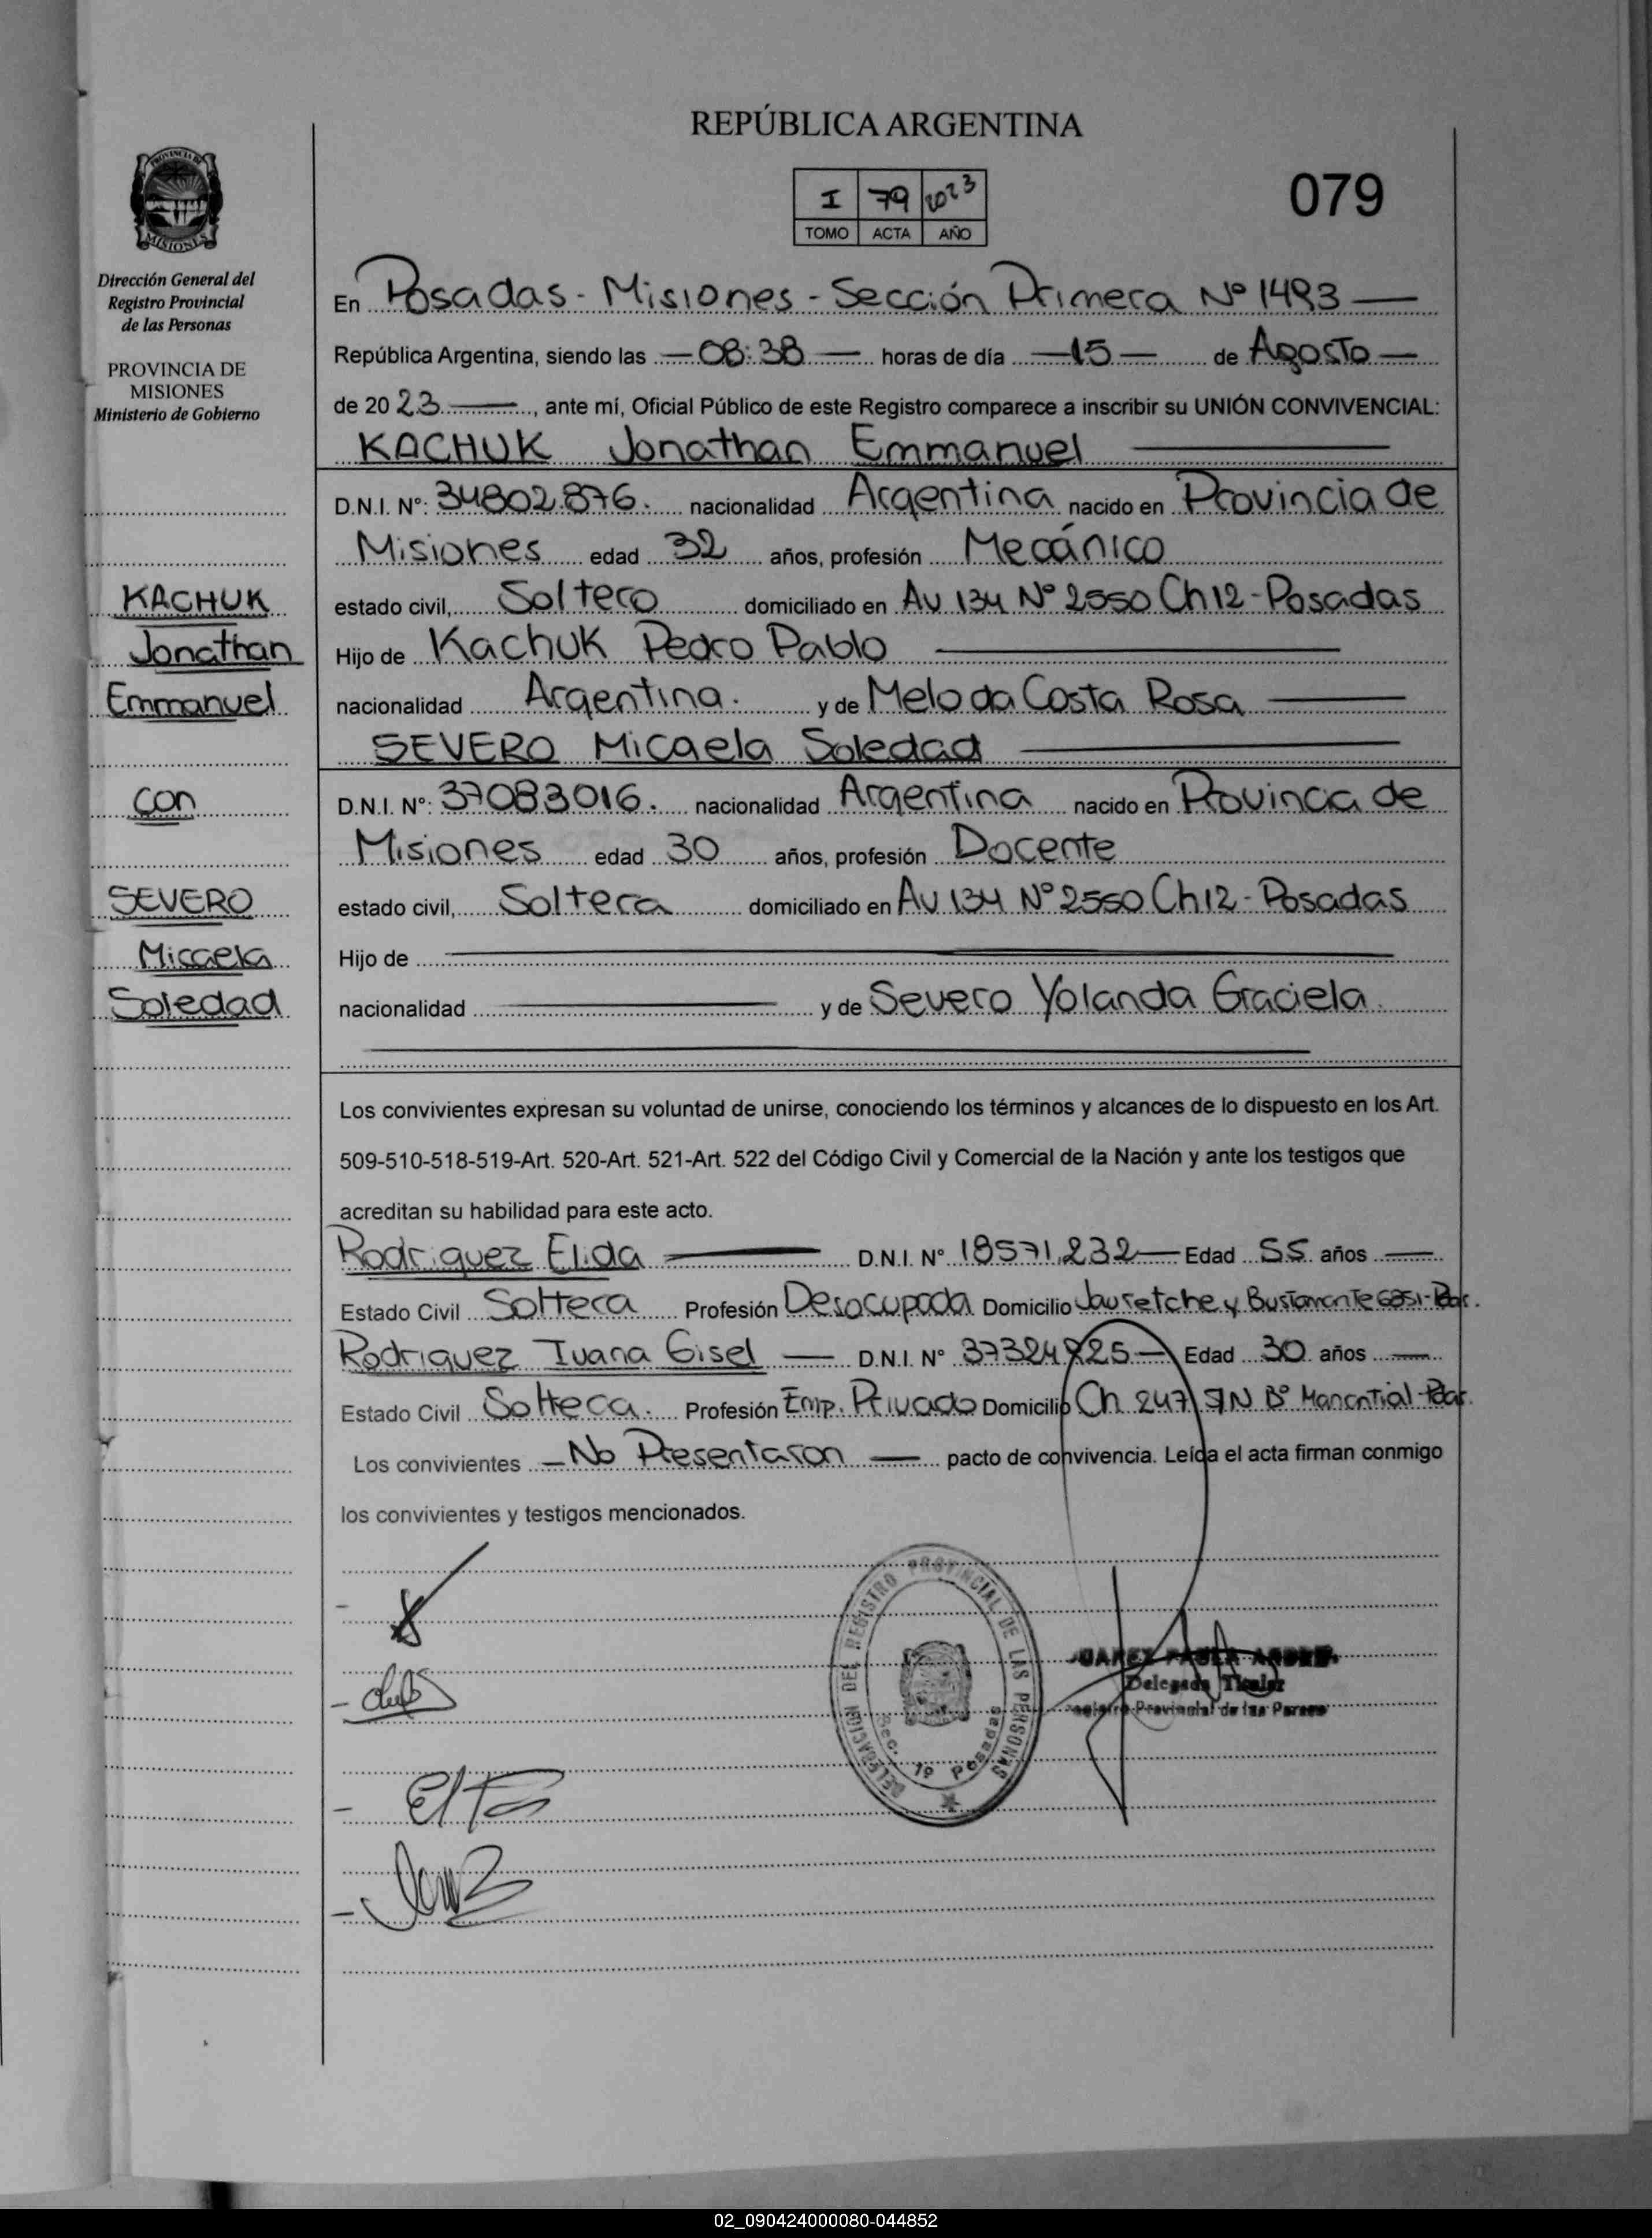 REPÚBLICA ARGENTINA
I 79 2023
TOMO ACTA AÑO
079
PROVINCIA DE
MISIONES
Dirección General del
Registro Provincial
de las Personas
PROVINCIA DE
MISIONES
Ministerio de Gobierno
KACHUK
Jonathan
Emmanuel
con
SEVERO
Micaela
Soledad
En Posadas - Misiones - Sección Primera Nº 1493
República Argentina, siendo las 08:38 horas de día 15 de Agosto
de 2023, ante mí, Oficial Público de este Registro comparece a inscribir su UNIÓN CONVIVENCIAL:
KACHUK Jonathan Emmanuel
D.N.I. Nº: 34802.876. nacionalidad Argentina nacido en Provincia de
Misiones edad 32 años, profesión Mecánico
estado civil, Soltero domiciliado en Av 134 Nº 2550 Ch12 - Posadas
Hijo de Kachuk Pedro Pablo
nacionalidad Argentina. y de Melo da Costa Rosa
SEVERO Micaela Soledad
D.N.I. Nº: 37083016. nacionalidad Argentina nacido en Provincia de
Misiones edad 30 años, profesión Docente
estado civil, Soltera domiciliado en Av 134 Nº 2550 Ch12 - Posadas
Hijo de
nacionalidad y de Severo Yolanda Graciela.
Los convivientes expresan su voluntad de unirse, conociendo los términos y alcances de lo dispuesto en los Art.
509-510-518-519-Art. 520-Art. 521-Art. 522 del Código Civil y Comercial de la Nación y ante los testigos que
acreditan su habilidad para este acto.
Rodriguez Elida D.N.I. Nº 18571.232 Edad 55 años
Estado Civil Soltera Profesión Desocupada Domicilio Jauretche y Bustamante 6351-Pdas.
Rodriguez Ivana Gisel D.N.I. Nº 37324925 Edad 30 años
Estado Civil Soltera. Profesión Emp. Privado Domicilio Ch 247 S/N Bº Manantial-Pdas.
Los convivientes No Presentaron pacto de convivencia. Leída el acta firman conmigo
los convivientes y testigos mencionados.
DELEGACION DEL REGISTRO PROVINCIAL DE LAS PERSONAS
Sec. 1º Posadas
Delegada Titular
Provincial de las
02_090424000080-044852